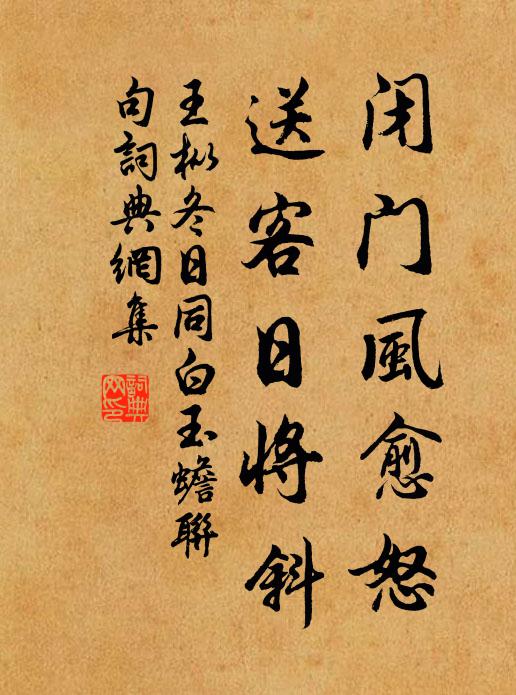 闭门風愈怒
送客日將斜
王枞冬日同白玉蟾聯
句詞典網集
詞典
网印